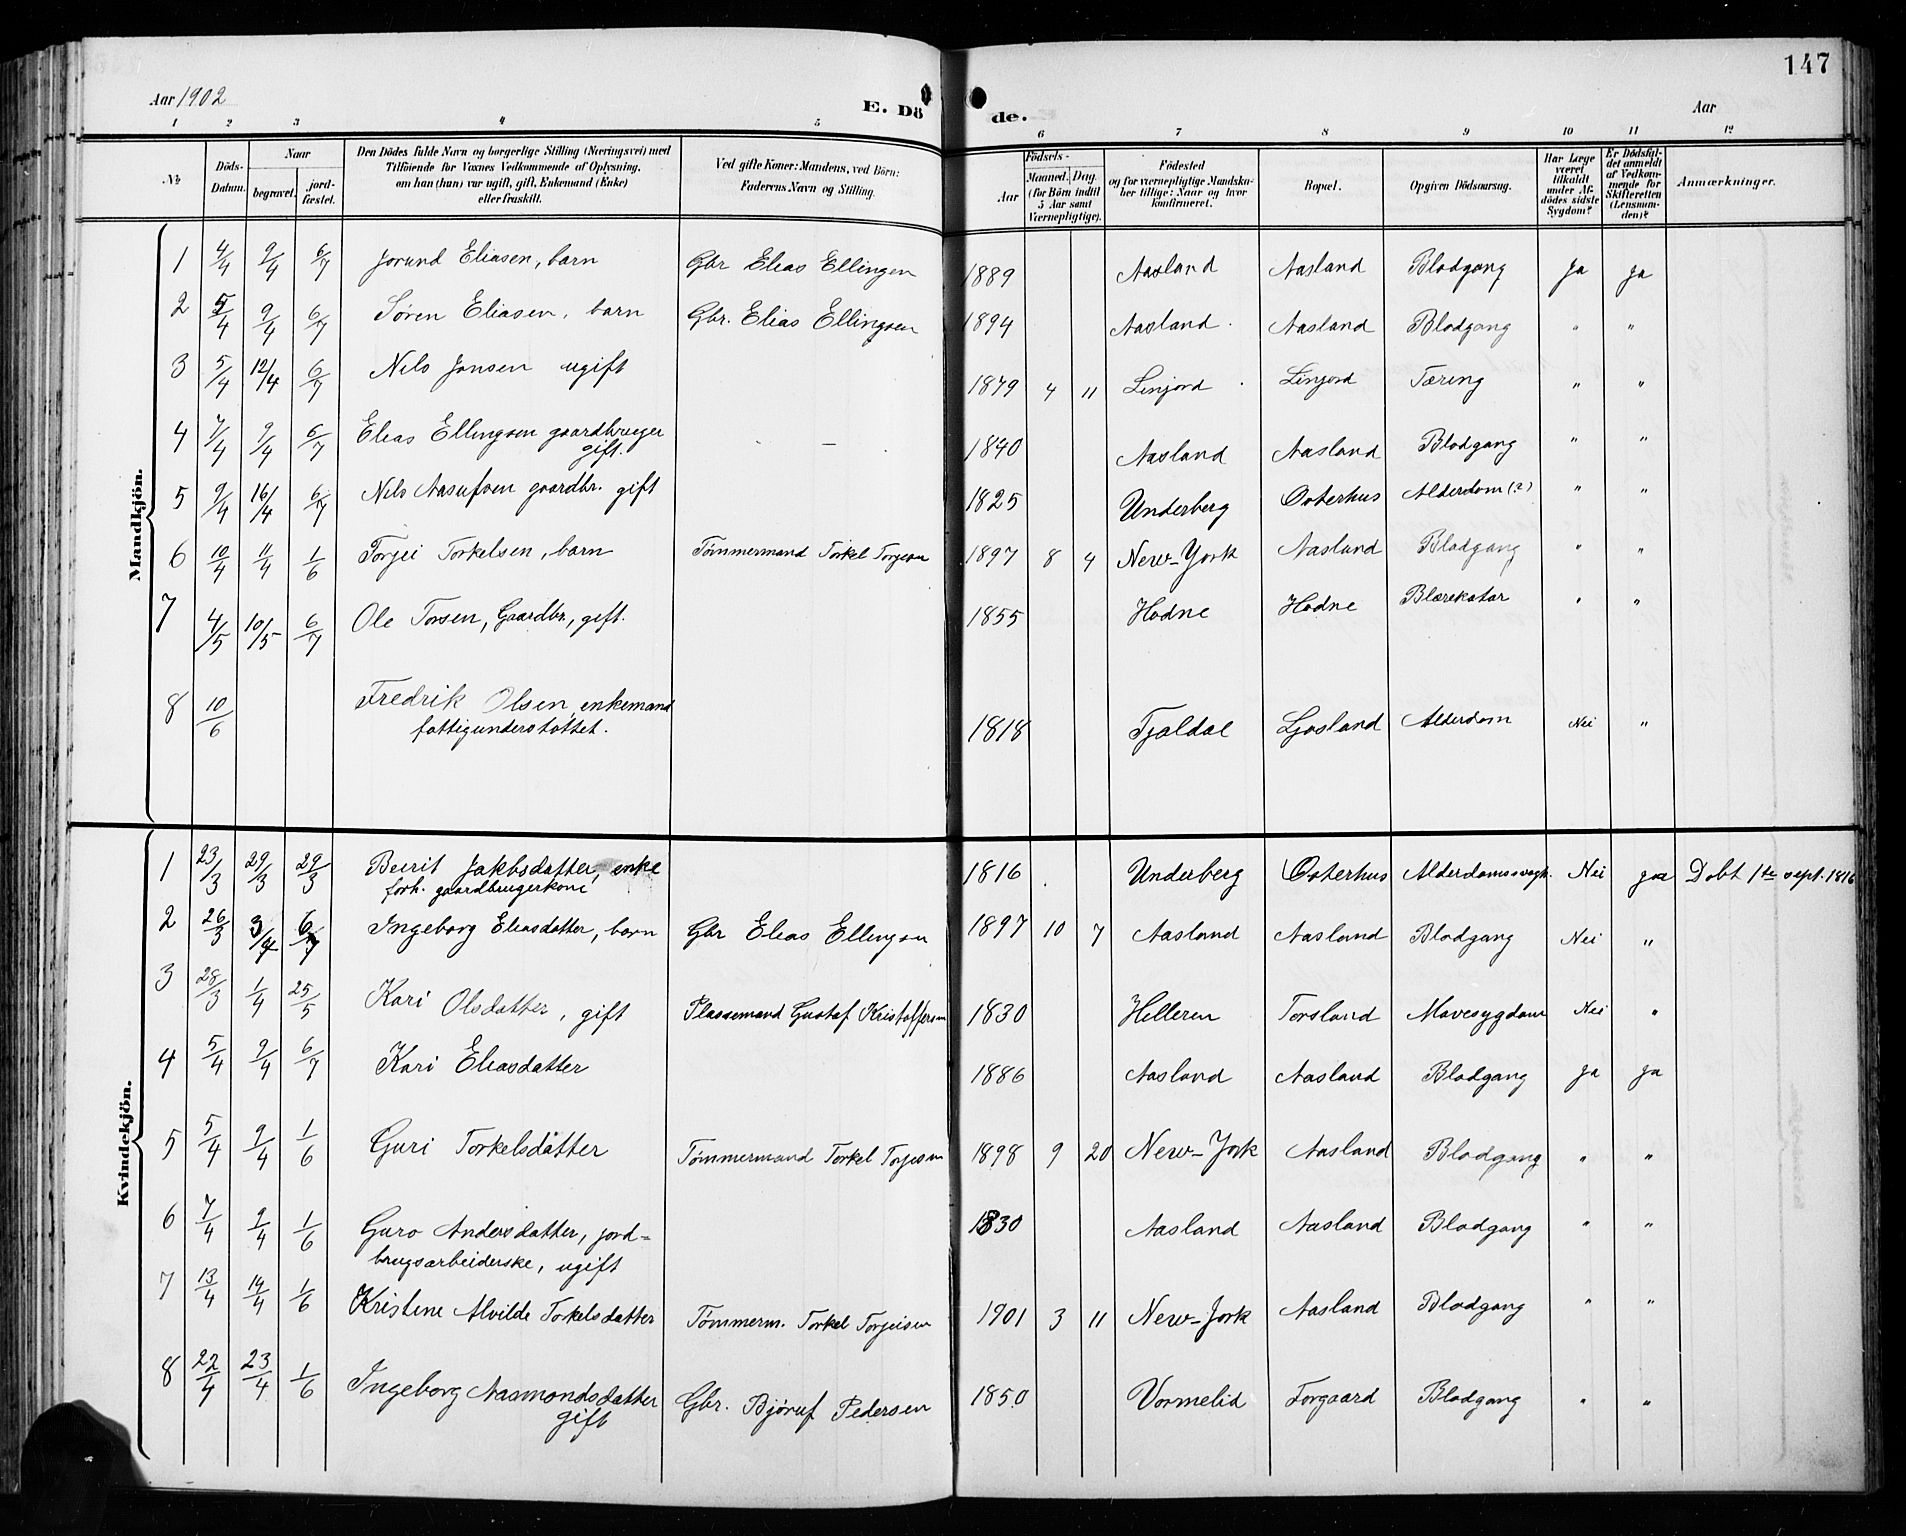 147
Aar 1902
E. Dö de.
Aar
1 2 3 4 5 6 7 8 9 10 11 12
№
Döds-Datum.
Naar
begravet.
jord-fæstet.
Den Dödes fulde Navn og borgerlige Stilling (Næringsvei) med
Tilföiende for Voxnes Vedkommende af Oplysning,
om han (hun) var ugift, gift, Enkemand (Enke)
eller fraskilt.
Ved gifte Koner: Mandens, ved Börn:
Faderens Navn og Stilling.
Födsels-
Aar
Maaned. Dag.
(for Börn indtil
5 Aar samt
Værnepligtige).
Födested
og for værnepligtige Mandska-
ber tillige: Naar og hvor
konfirmeret.
Bopæl.
Opgiven Dödsaarsag.
Har Læge
været
tilkaldt
under Af-
dödes sidste
Sygdom?
Er Dödsfal-
det anmeldt
af Vedkom-
mende for
Skifteretten
(Lensman-
den)?
Anmærkninger.
Mandkjön.
1 4/4 9/4 6/7 Jorund Eliasen, barn Gbr Elias Ellingsen 1889 Aasland Aasland Blodgang Ja ja
2 5/4 9/4 6/7 Søren Eliasen, barn Gbr. Elias Ellingsen 1894 Aasland. Aasland Blodgang " "
3 5/4 12/4 6/7 Nils Jonsen ugift 1879 4 11 Linjord Linjord Tæring " "
4 7/4 9/4 6/7 Elias Ellingsen gaardbruger
gift. — 1840 Aasland Aasland Blodgang " "
5 9/4 16/4 6/7 Nils Aasufsen gaardbr. gift 1825 Underberg Osterhus Alderdom (?) " "
6 10/4 11/4 1/6 Torjei Torkelsen, barn Tømmermand Torkel Torjesen 1897 8 4 New-York Aasland Blodgang " "
7 4/5 10/5 6/7 Ole Torsen, Gaardbr., gift. 1855 Hodne Hodne Blærekatar " "
8 10/6 Fredrik Olsen, enkemand
fattigunderstøttet. 1818 Tjaldal Ljosland Alderdom Nei "
Kvindekjön.
1 23/3 29/3 29/3 Beerit Jakbsdatter, enke
forh. gaardbrugerkone 1816 Underberg Osterhus Alderdomssvagh. Nei jaa Dobt 1te sept. 1816
2 26/3 3/4 6/7 Ingeborg Eliasdatter, barn Gbr Elias Ellingsen 1897 10 7 Aasland Aasland Blodgang Nei "
3 28/3 1/4 25/5 Kari Olsdatter, gift Plassemand Gustaf Kristoffersen 1830 Helleren Torsland Mavesygdom Nei "
4 5/4 9/4 6/7 Kari Eliasdatter 1886 Aasland Aasland Blodgang ja ja
5 5/4 9/4 1/6 Guri Torkelsdatter Tømmermand Torkel Torjesen 1898 9 20 New-York Aasland Blodgang " "
6 7/4 9/4 1/6 Guro Andersdatter, jord-
brugsarbeiderske, ugift 1830 Aasland Aasland Blodgang " "
7 13/4 14/4 1/6 Kristine Alvilde Torkelsdatter Tømmerm. Torkel Torjeisen 1901 3 11 New-York Aasland Blodgang " "
8 22/4 23/4 1/6 Ingeborg Aasmondsdatter
gift Gbr. Bjøruf Pedersen 1850 Vormelid Torgaard Blodgang " "